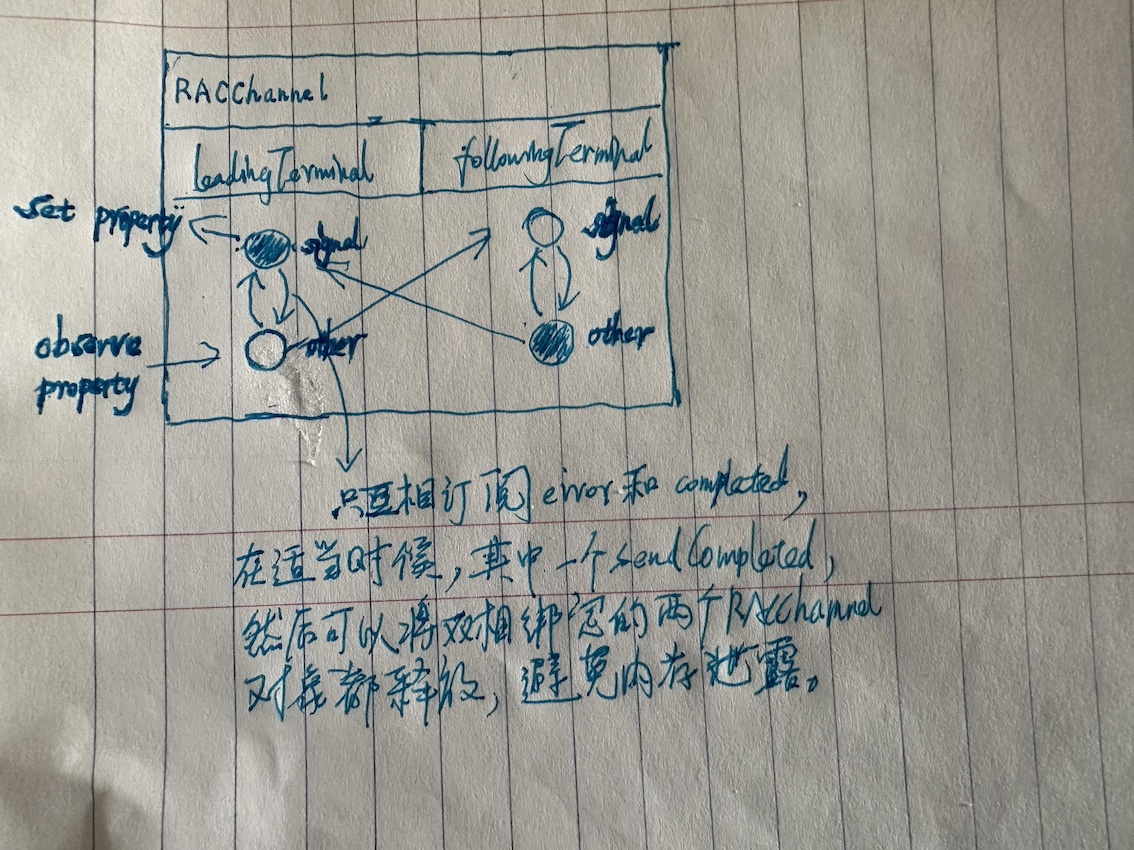 RACChannel
leadingTerminal
followingTerminal
set property
signal
signal
observe
property
other
other
只互相订阅error和completed,
在适当时候,其中一个sendCompleted,
然后可以将双相绑定的两个RACChannel
对象都释放,避免内存泄露。